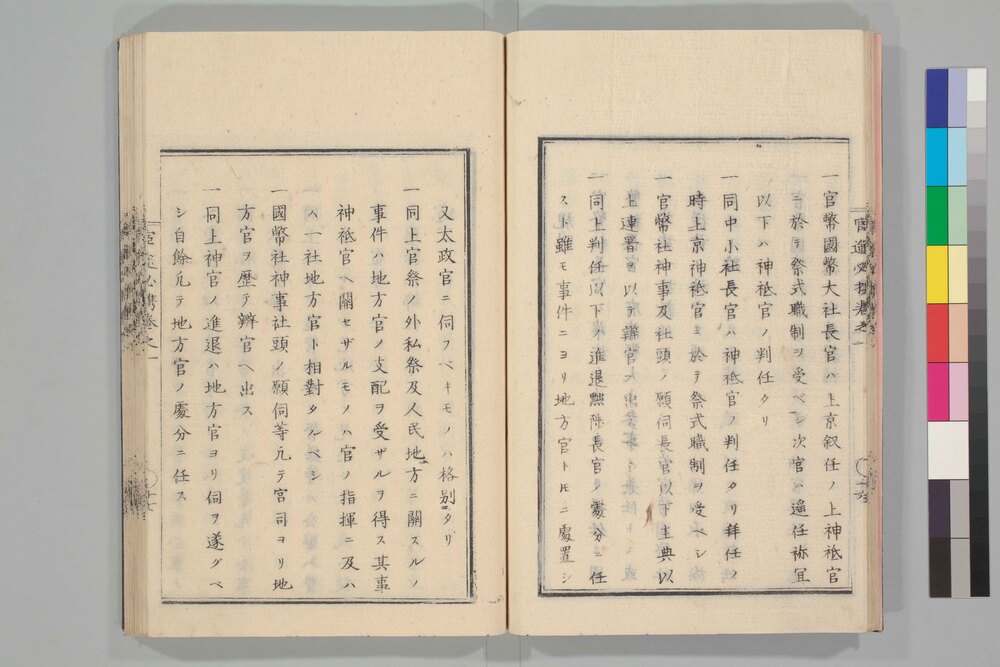 一官幣國幣大社長官ハ上京叙任ノ上神祇官
ニ於テ祭式職制ヲ受ベシ次官ハ遥任祢冝
以下ハ神祇官ノ判任タリ
一同中小社長官ハ神祇官ノ判任タリ拜任ノ
時上京神祇官ニ於テ祭式職制ヲ受ベシ
一官幣社神事及社頭ノ願伺長官以下主典以
上連署ヲ以テ辨官
一同上判任以下ノ進退黜陟長官ノ處分ニ任
スト雖モ事件ニヨリ地方官トモニ處置シ
又太政官ニ伺フベキモノハ格別タリ
一同上官祭ノ外私祭及人民地方ニ關スルノ
事件ハ地方官ノ支配ヲ受ザルヲ得ス其事
神祇官ヘ關セザルモノハ官ノ指揮ニ及ハ
ハ一社地方官ト相對タルベシ
一國幣社神事社頭ノ願伺等凢テ宮司ヨリ地
方官ヲ歷テ辨官ヘ出ス
一同上神官ノ進退ハ地方官ヨリ伺ヲ遂グベ
シ自餘凢テ地方官ノ處分ニ任ス